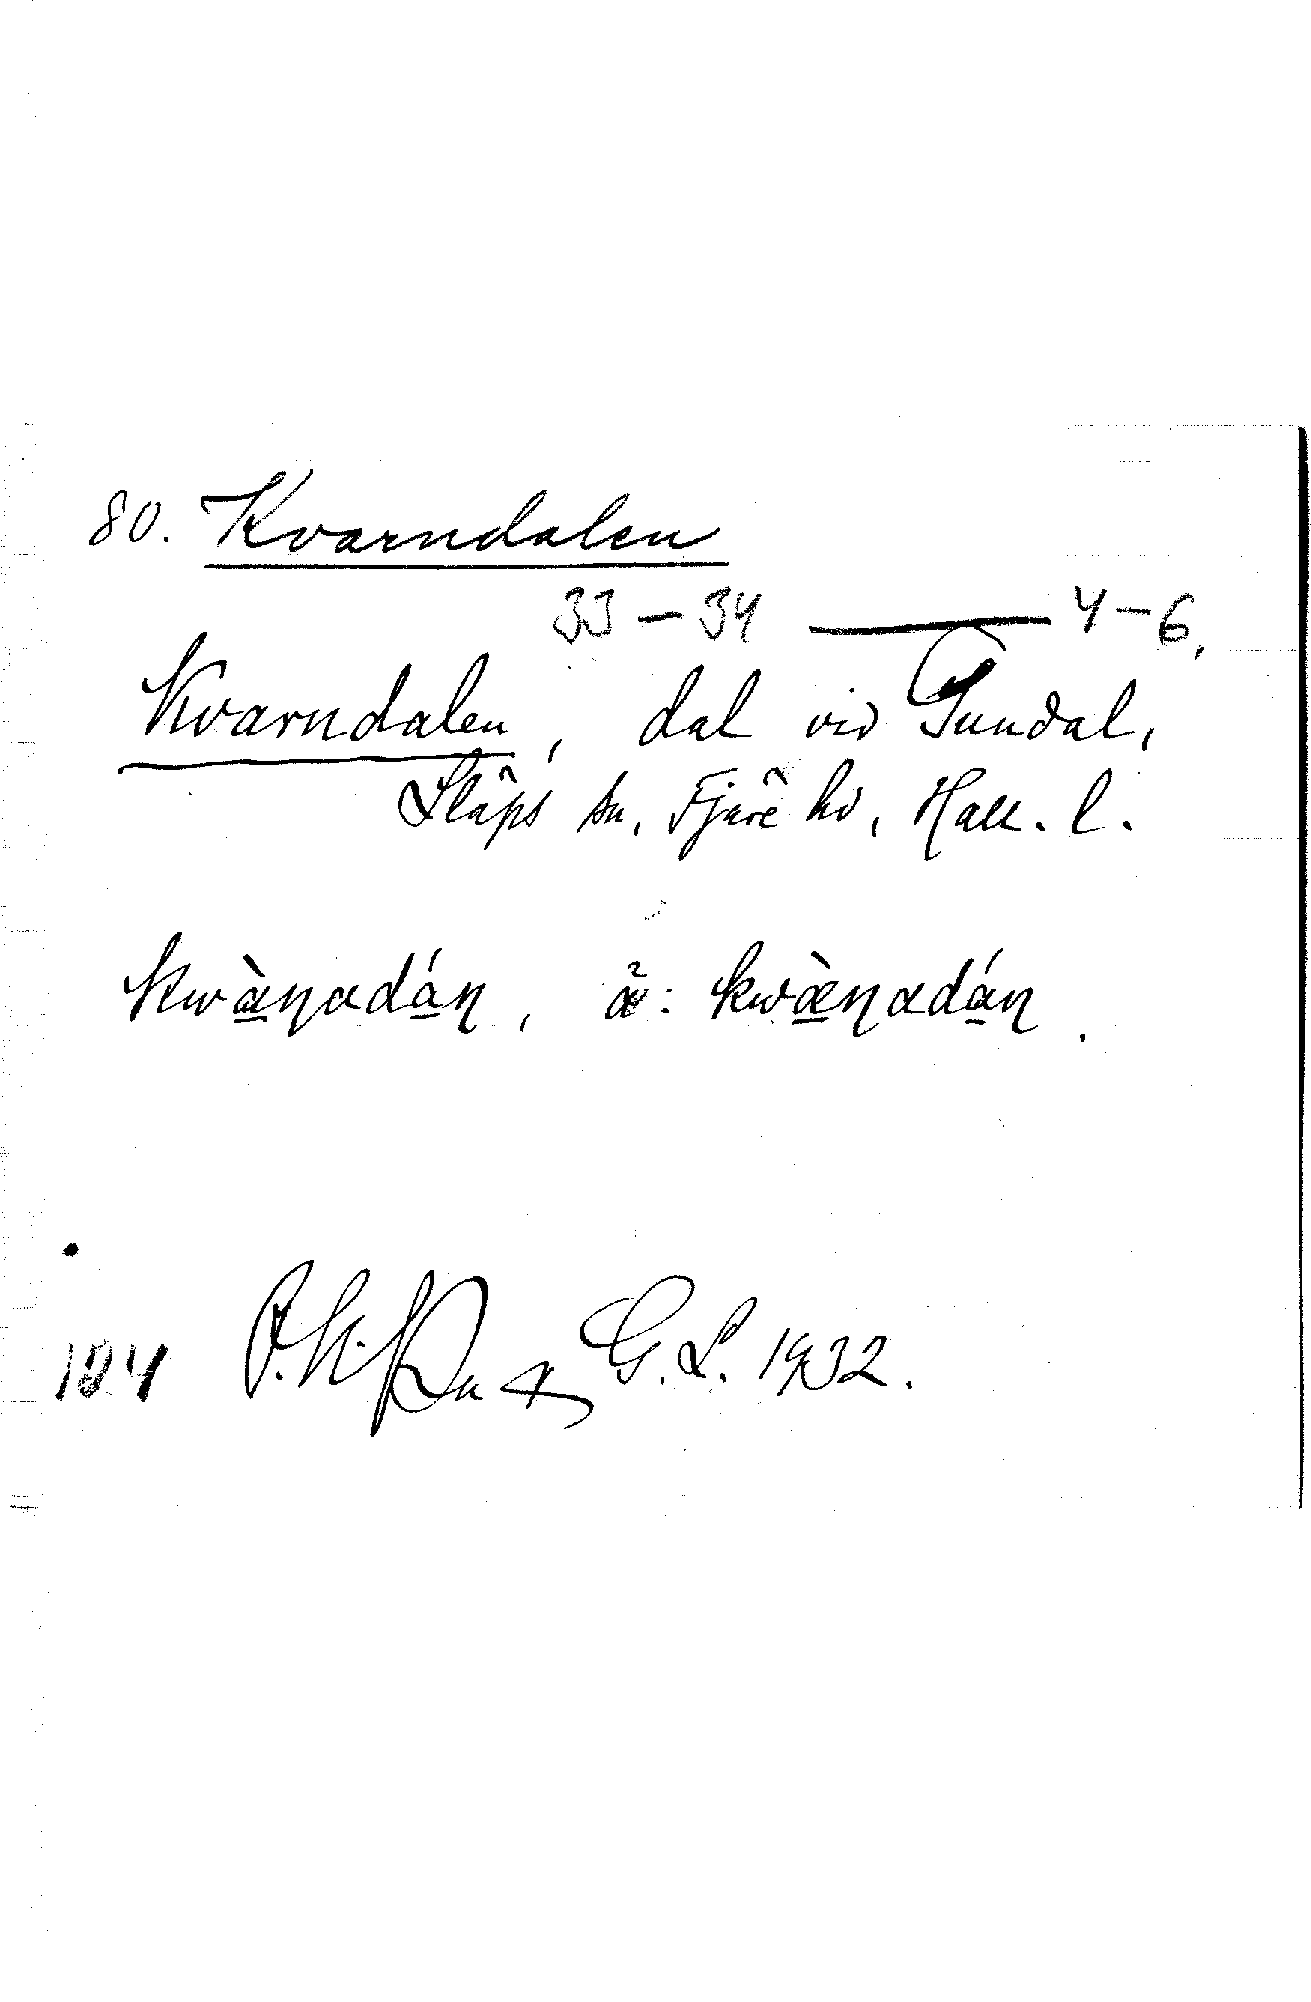 80. Kvarndalen
33–34 — 4–6.
Kvarndalen, dal vid Tundal,
Släps sn, Fjäre hd, Hall. l.
kwàŋadáŋ, ä: kwæ̀ŋadáŋ.
104 G. L. 1932.